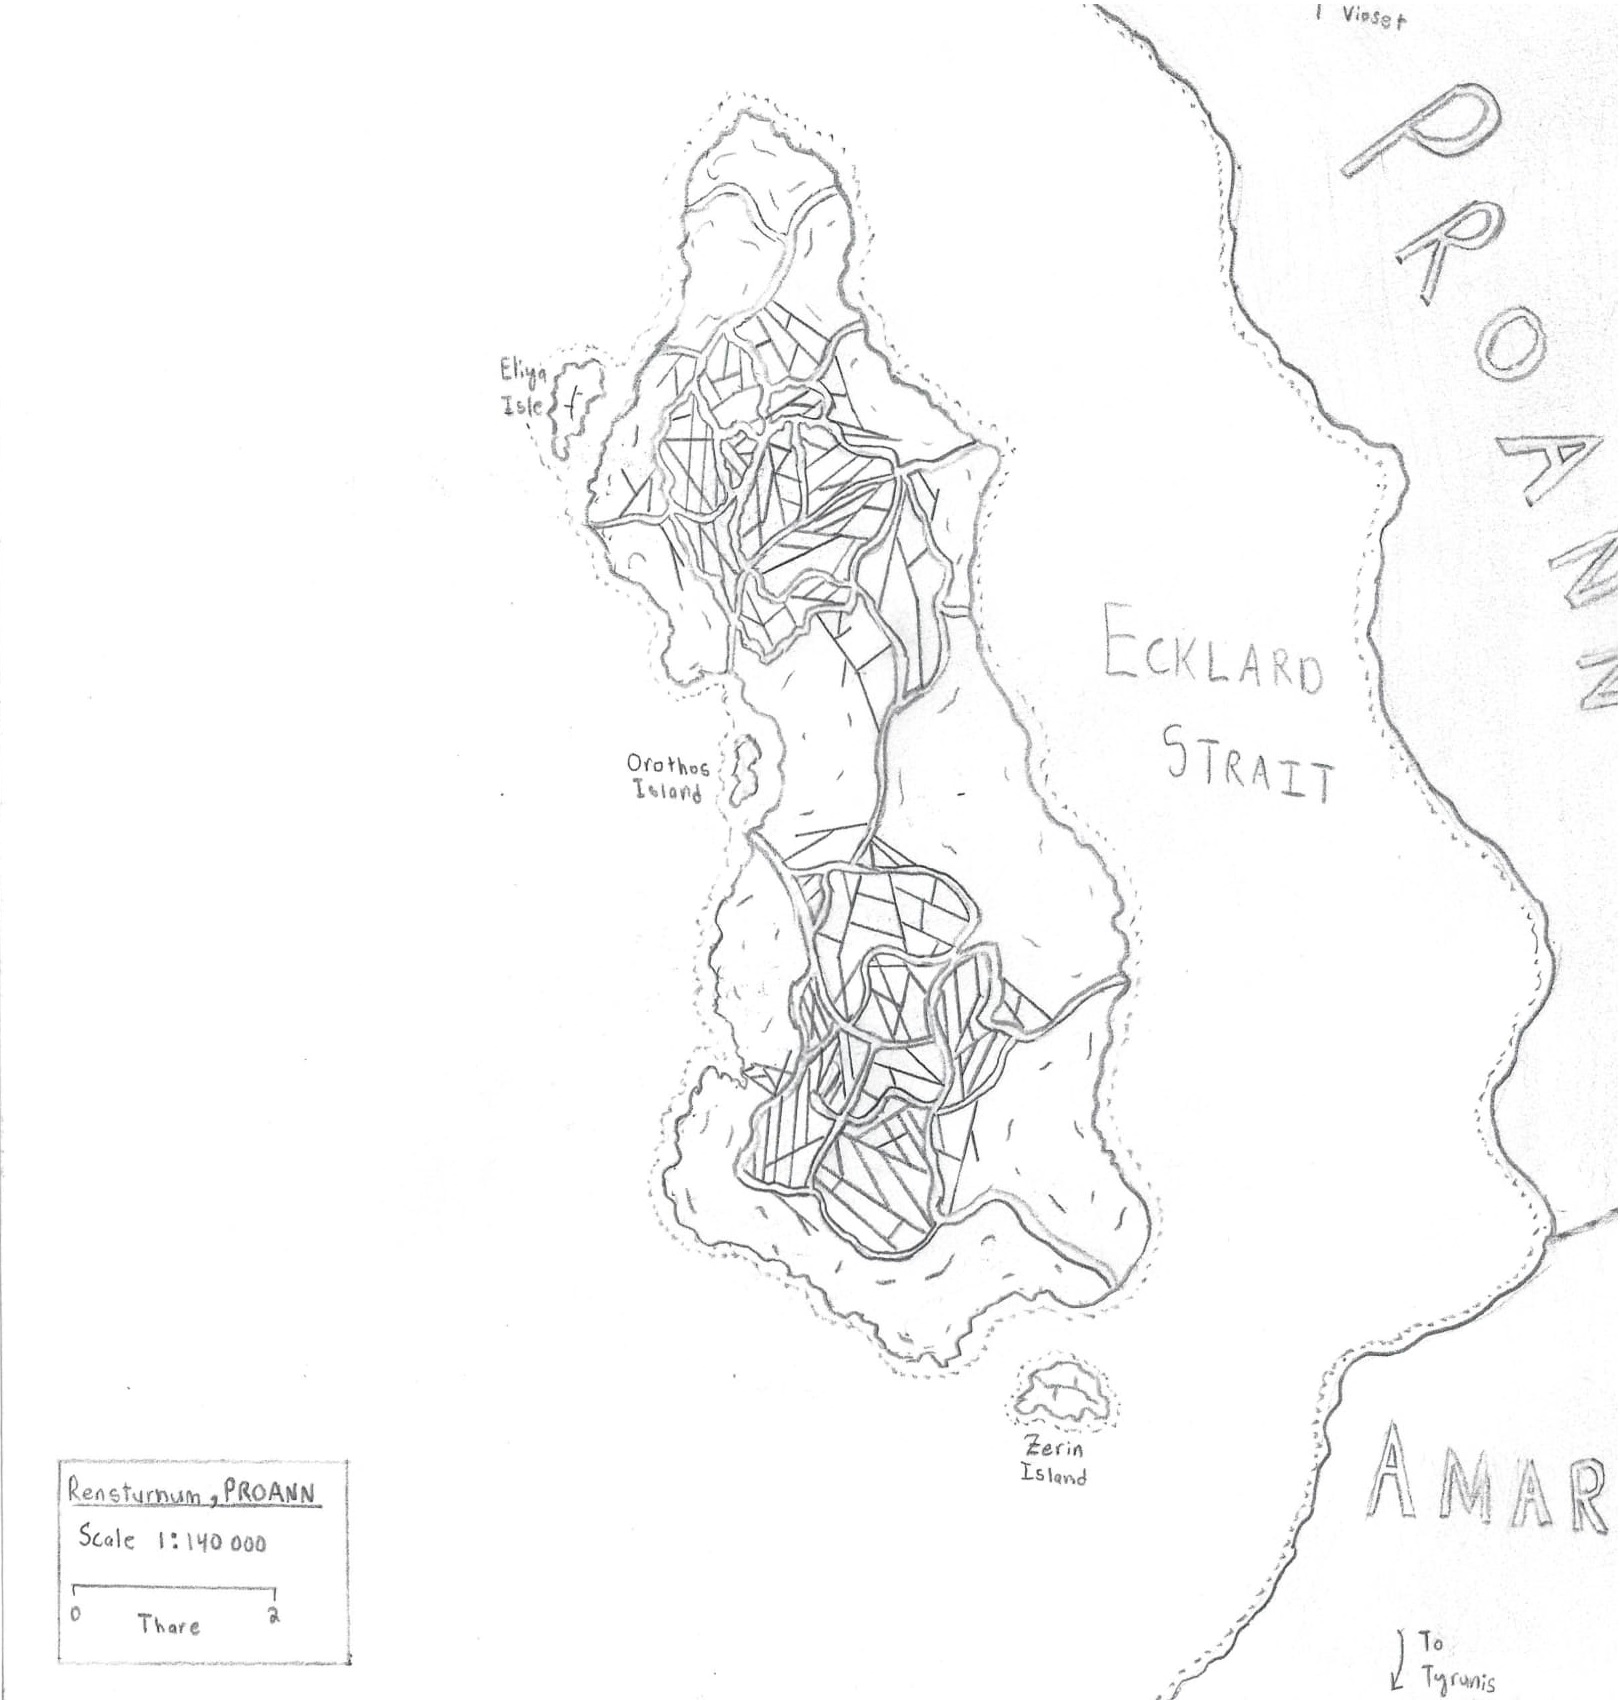 Vioset
PROANN
Eliya
Isle
ECKLARD
STRAIT
Orothos
Island
Zerin
Island
Rensturnum, PROANN
Scale 1:140 000
0 2
Thare
AMAR
To
Tyrunis